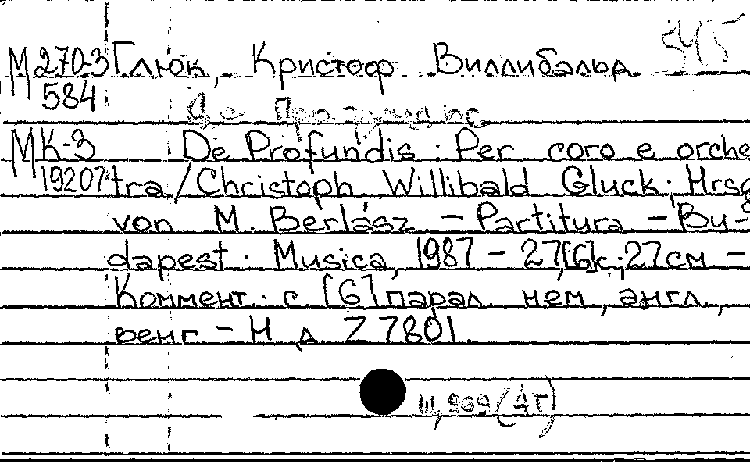 М 270-3 Глюк, Кристоф Виллибальд 545
584
Де Профундис
МК-3 De Profundis : Per coro e orche-
19207 tra / Christoph Willibald Gluck ; Hrsg
von M. Berlász – Partitura – Bu-
dapest : Musica, 1987 – 27,[6]с ; 27см –
Коммент. : с [6] парал. нем, англ.,
венг – Н. д. Z 7801.
Щ,909 (4Г)